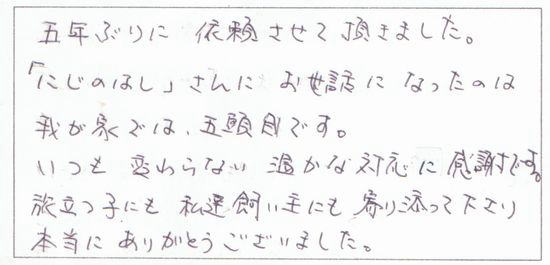 五年ぶりに 依頼させて頂きました。
「にじのはし」さんに お世話に なったのは
我が家では、五頭目です。
いつも 変わらない 温かな対応に 感謝です。
旅立つ子にも 私達飼い主にも 寄り添って下さり
本当に ありがとうございました。